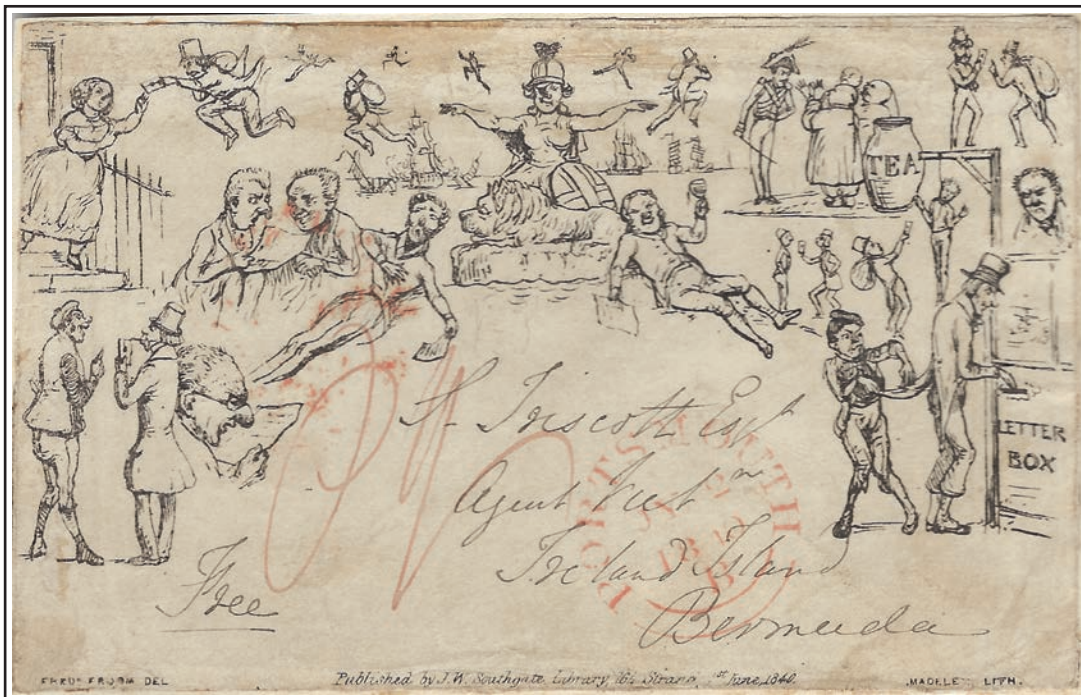 TEA
LETTER
BOX
Triscott Esq
Agent Vict
Ireland Island
Bermuda
Free
PORTSMOUTH
FRED FROOM DEL
Published by J.W. Southgate Library, 164 Strand, 1st June, 1840.
MADELEY LITH.